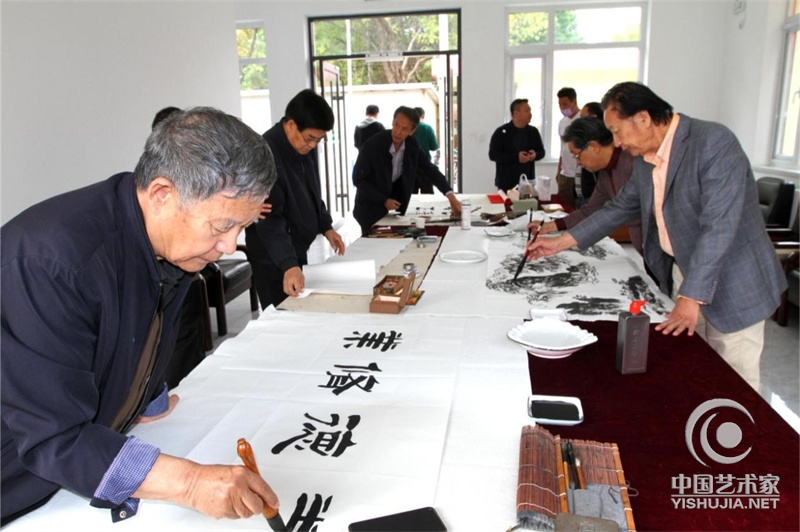 德修業
中国艺术家
YISHUJIA.NET